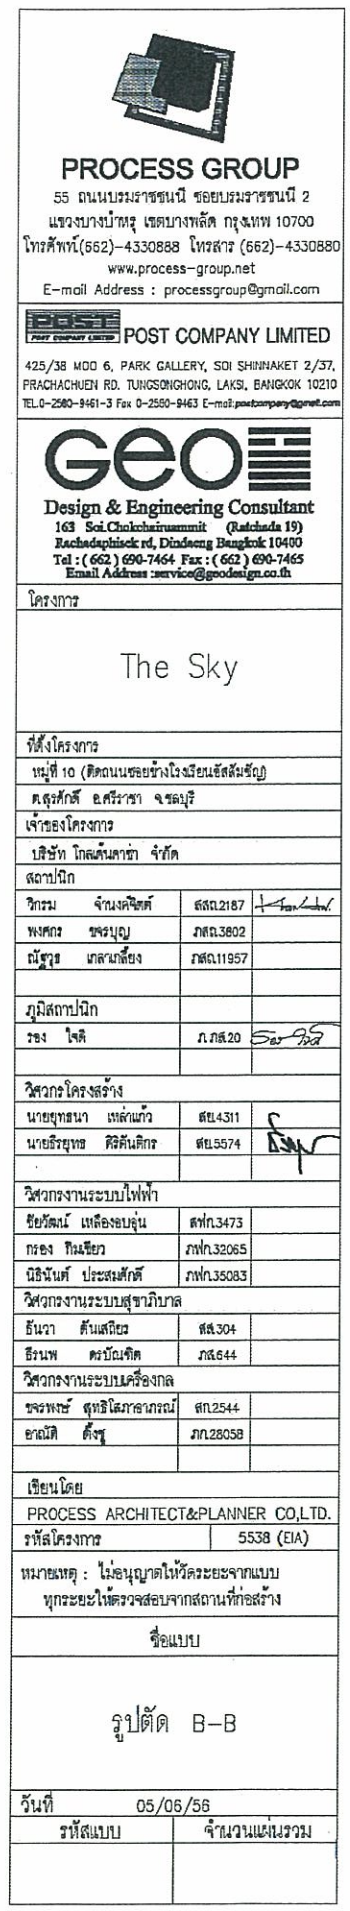 PROCESS GROUP
55 ถนนบรมราชชนนี ซอยบรมราชชนนี 2
แขวงบางบำหรุ เขตบางพลัด กรุงเทพ 10700
โทรศัพท์.(662)-4330888 โทรสาร (662)-4330880
www.process-group.net
E-mail Address : processgroup@gmail.com
POST
POST COMPANY LIMITED
POST COMPANY LIMITED
425/38 MOO 6, PARK GALLERY, SOI SHINNAKET 2/37,
PRACHACHUEN RD. TUNGSONGHONG, LAKSI, BANGKOK 10210
TEL.0-2580-9461-3 Fax 0-2580-9463 E-mail:postcompany@gmail.com
GEO
Design & Engineering Consultant
163 Soi.Chokchairuammit (Ratchada 19)
Rachadaphisek rd, Dindaeng Bangkok 10400
Tel : ( 662 ) 690-7464 Fax : ( 662 ) 690-7465
Email Address :service@geodesign.co.th
โครงการ
The Sky
ที่ตั้งโครงการ
หมู่ที่ 10 (ติดถนนซอยข้างโรงเรียนอัสสัมชัญ)
ต.สุรศักดิ์ อ.ศรีราชา จ.ชลบุรี
เจ้าของโครงการ
บริษัท โกลเด้นคาซ่า จำกัด
สถาปนิก
วิกรม จำนงค์จิตต์ สสถ.2187
พงศกร ขจรบุญ ภสถ.3802
ณัฐวุธ เกลาเกลี้ยง ภสถ.11957
ภูมิสถาปนิก
รอง ใจดี ภ.ภส.20
วิศวกรโครงสร้าง
นายยุทธนา เหล่าแก้ว สย.4311
นายธีรยุทธ ศิริตันติกร สย.5574
วิศวกรงานระบบไฟฟ้า
ชัยวัฒน์ เหลืองอบอุ่น สฟก.3473
กรอง ทิมเขียว ภฟก.32065
นิธินันต์ ประสมศักดิ์ ภฟก.35083
วิศวกรงานระบบสุขาภิบาล
ธันวา ตันเสถียร สส.304
ธีรนพ ดรบัณฑิต ภส.644
วิศวกรงานระบบเครื่องกล
ขจรพงษ์ สุทธิโสภาอาภรณ์ สก.2544
อาณัติ ตั้งชู ภก.28058
เขียนโดย
PROCESS ARCHITECT&PLANNER CO,LTD.
รหัสโครงการ 5538 (EIA)
หมายเหตุ : ไม่อนุญาตให้วัดระยะจากแบบ
ทุกระยะให้ตรวจสอบจากสถานที่ก่อสร้าง
ชื่อแบบ
รูปตัด B-B
วันที่ 05/06/56
รหัสแบบ จำนวนแผ่นรวม